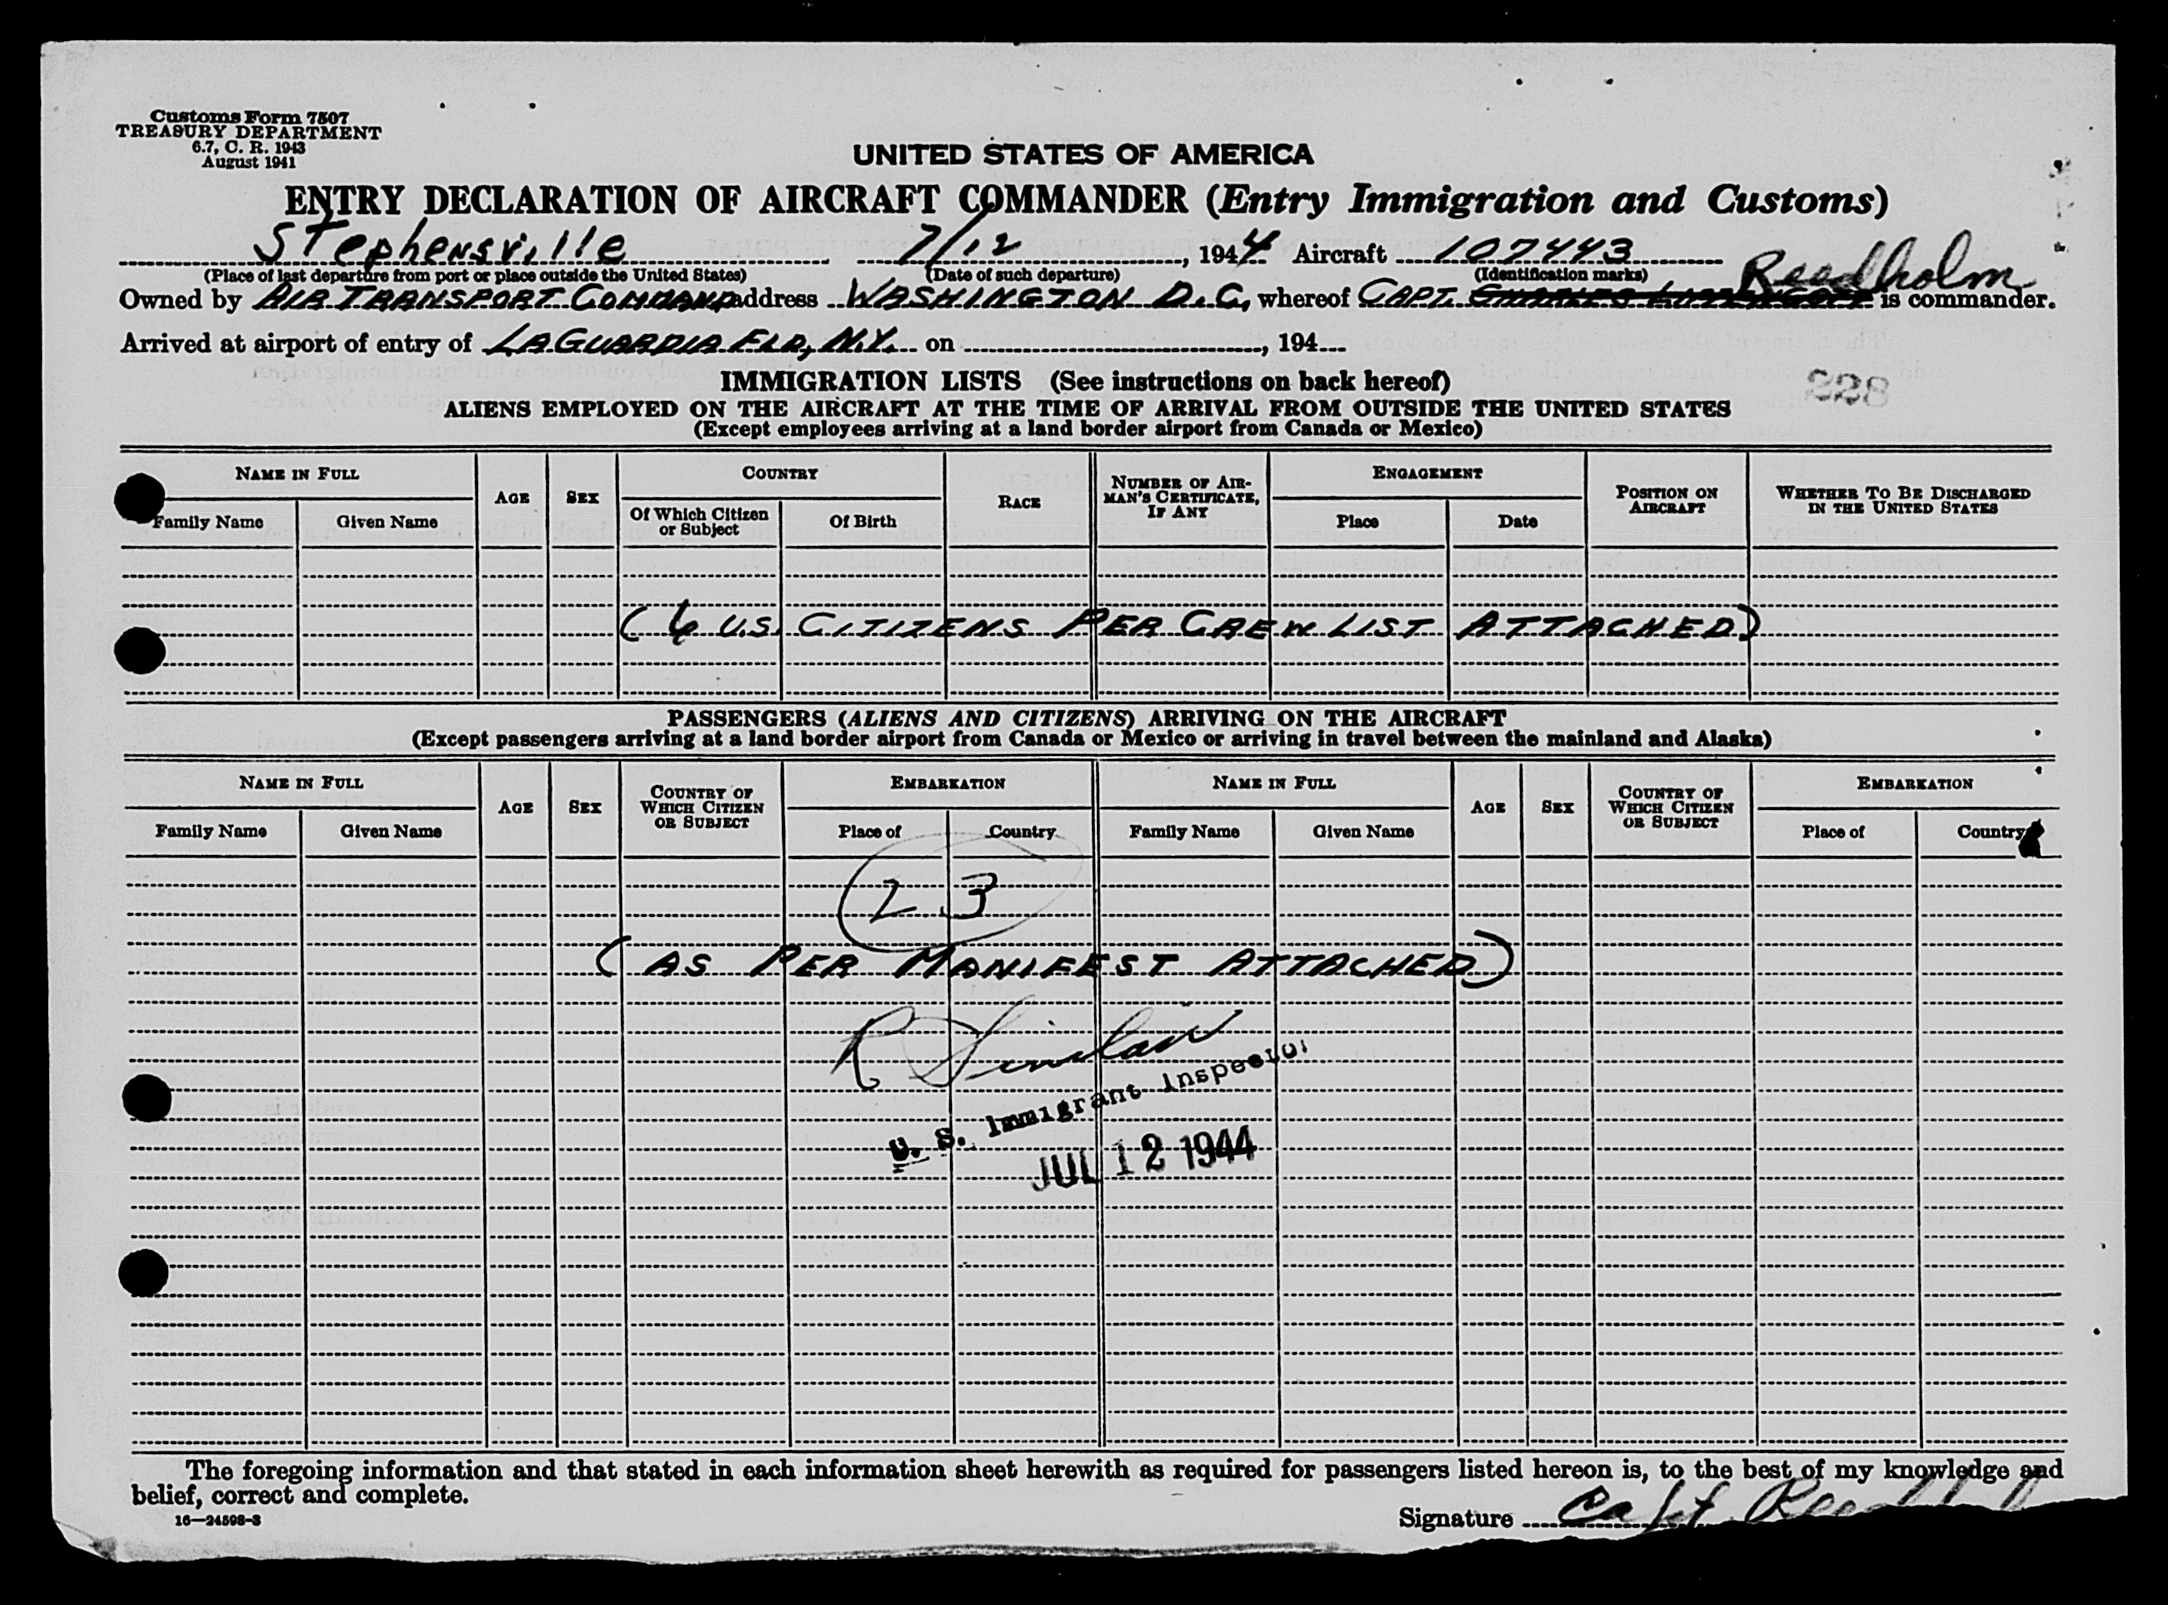 Customs Form 7507
TREASURY DEPARTMENT
6.7, C. R. 1943
August 1941
UNITED STATES OF AMERICA
ENTRY DECLARATION OF AIRCRAFT COMMANDER (Entry Immigration and Customs)
Stephensville 7/12, 1944 Aircraft 107443
(Place of last departure from port or place outside the United States) (Date of such departure) (Identification marks) Reedholm
Owned by AIR TRANSPORT COMMAND address WASHINGTON D.C., whereof CAPT. is commander.
Arrived at airport of entry of LAGUARDIA FLD, N.Y. on , 194
IMMIGRATION LISTS (See instructions on back hereof)
228
ALIENS EMPLOYED ON THE AIRCRAFT AT THE TIME OF ARRIVAL FROM OUTSIDE THE UNITED STATES
(Except employees arriving at a land border airport from Canada or Mexico)
NAME IN FULL AGE SEX COUNTRY RACE NUMBER OF AIRMAN'S CERTIFICATE, IF ANY ENGAGEMENT POSITION ON AIRCRAFT WHETHER TO BE DISCHARGED IN THE UNITED STATES
Family Name Given Name Of Which Citizen or Subject Of Birth Place Date
(6 U.S. CITIZENS PER CREW LIST ATTACHED)
PASSENGERS (ALIENS AND CITIZENS) ARRIVING ON THE AIRCRAFT
(Except passengers arriving at a land border airport from Canada or Mexico or arriving in travel between the mainland and Alaska)
NAME IN FULL AGE SEX COUNTRY OF WHICH CITIZEN OR SUBJECT EMBARKATION NAME IN FULL AGE SEX COUNTRY OF WHICH CITIZEN OR SUBJECT EMBARKATION
Family Name Given Name Place of Country Family Name Given Name Place of Country
23
(AS PER MANIFEST ATTACHED)
R Sinclair
U. S. Immigrant Inspector
JUL 12 1944
The foregoing information and that stated in each information sheet herewith as required for passengers listed hereon is, to the best of my knowledge and
belief, correct and complete.
16—24598-3
Signature Capt